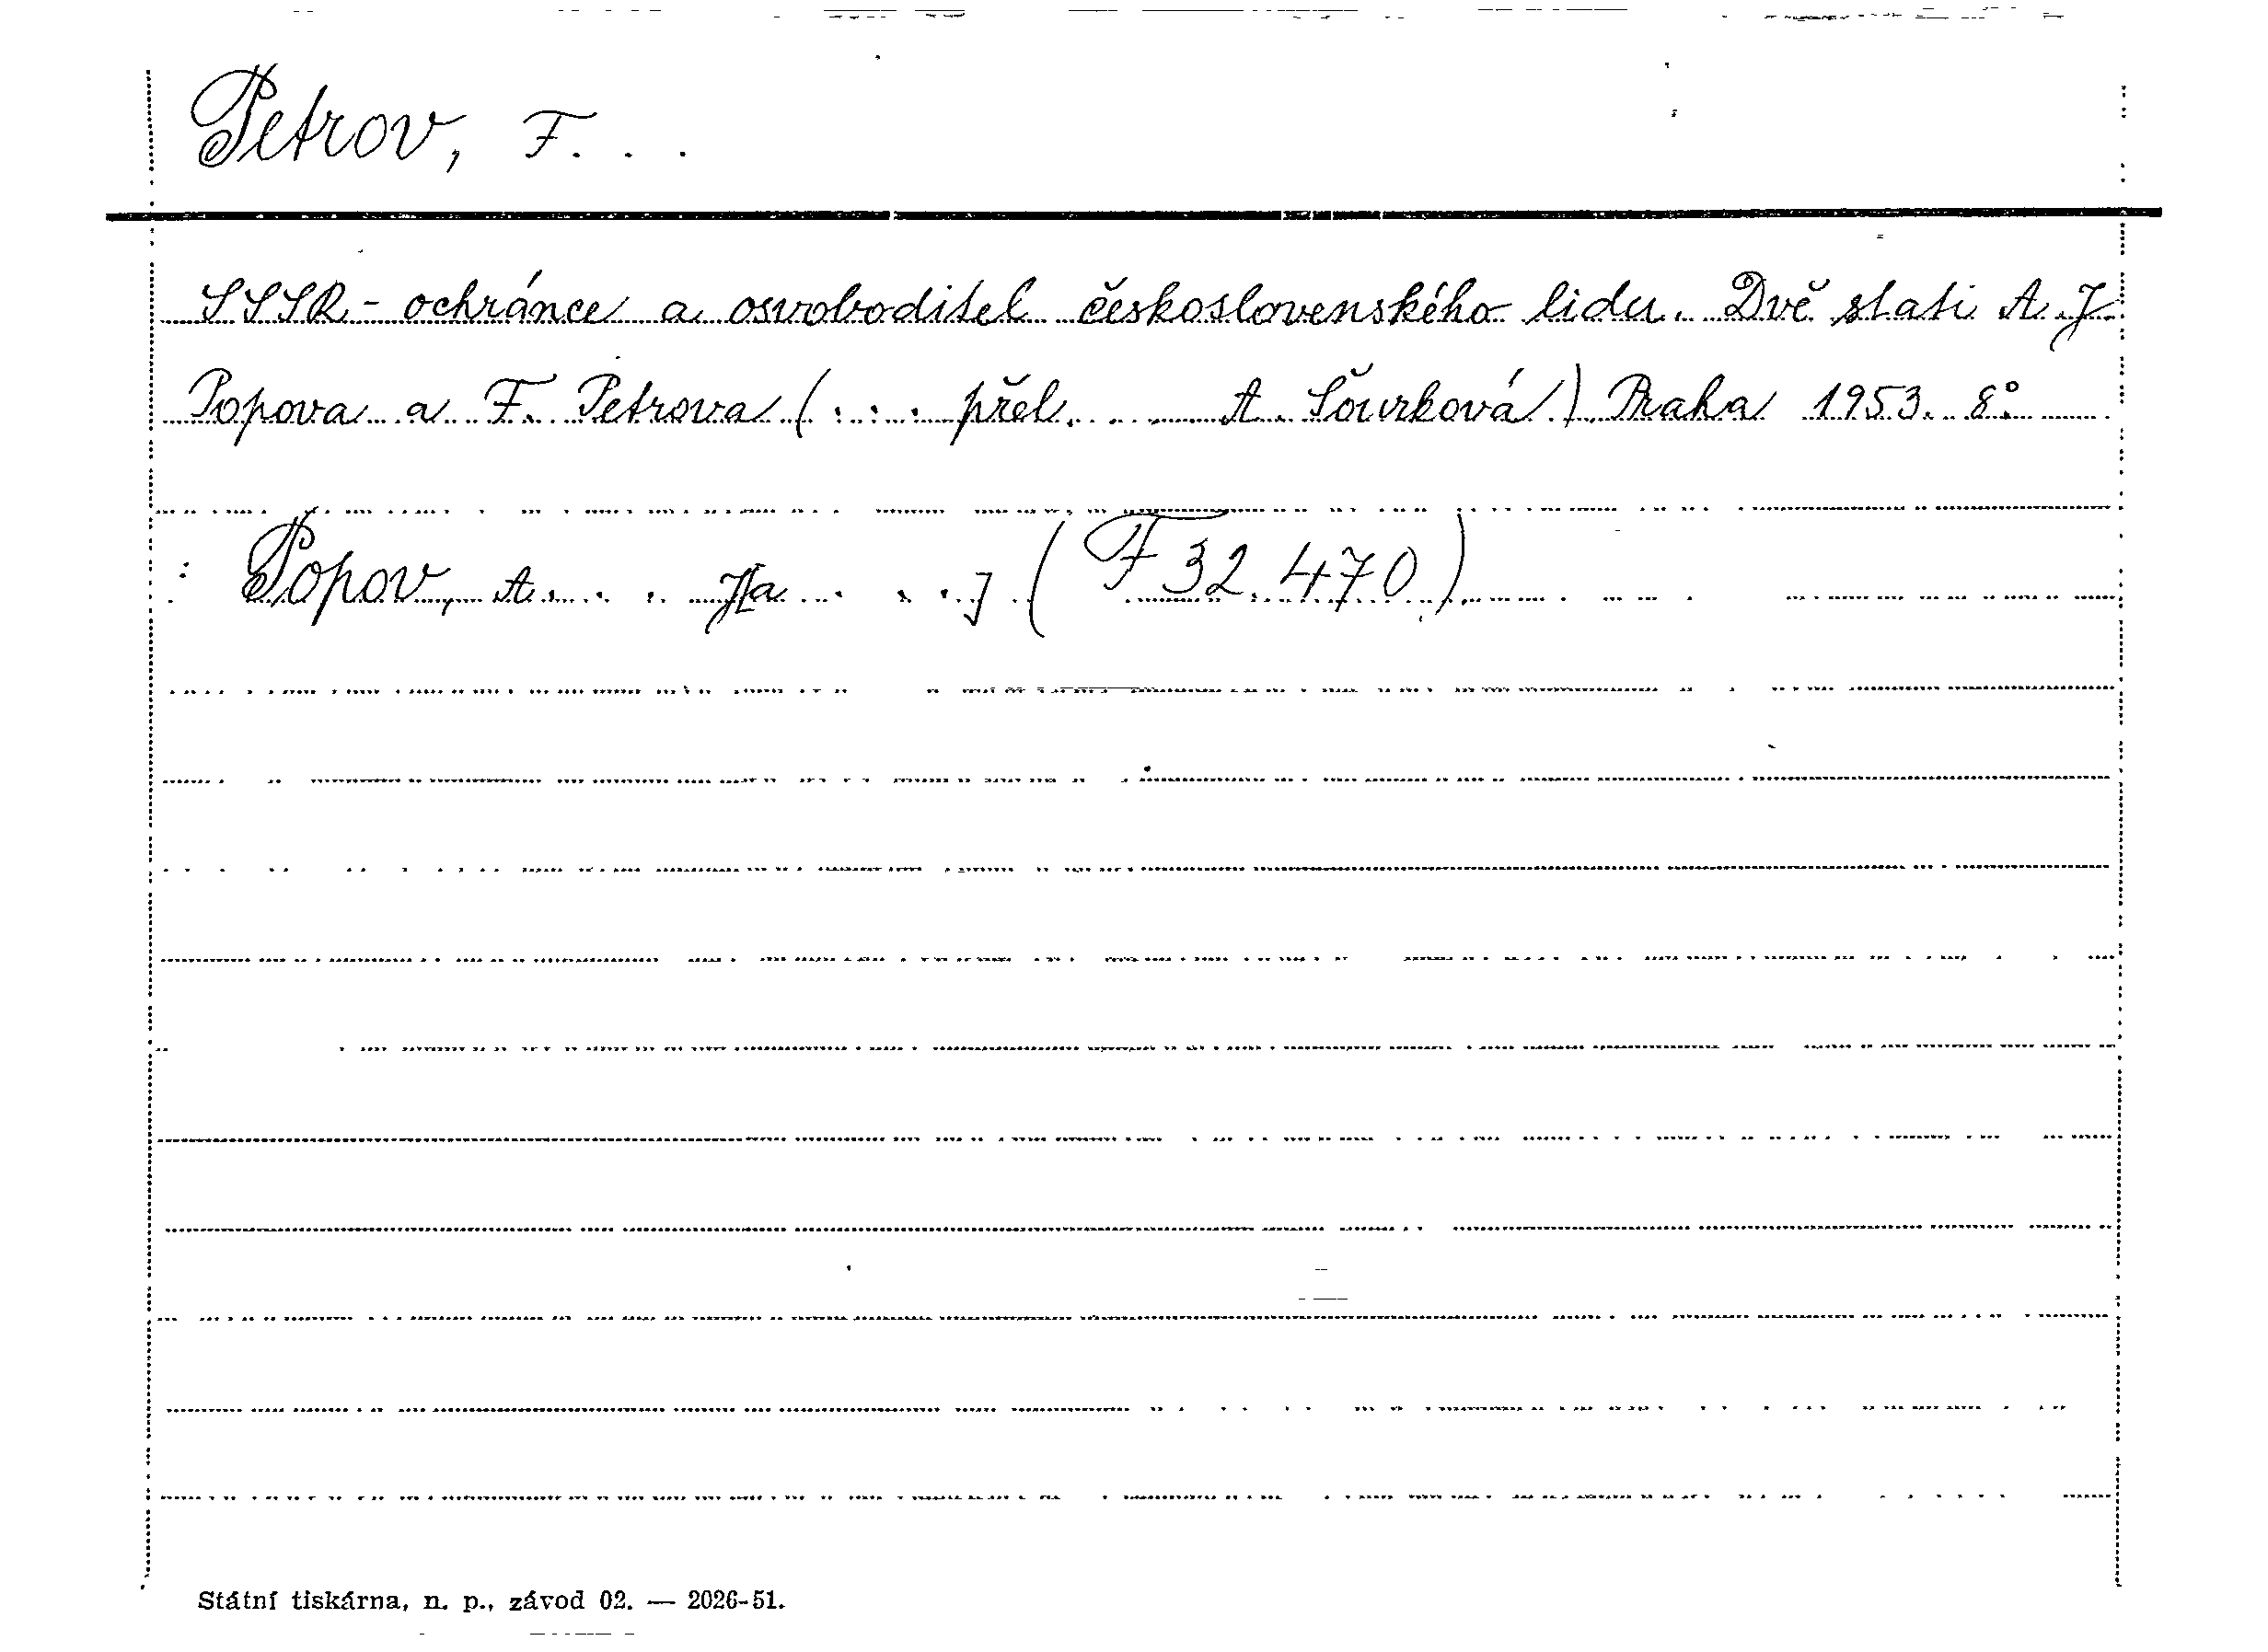 Petrov, F. . .
SSSR - ochránce a osvoboditel československého lidu. Dvě stati A. J.
Popova a F. Petrova (. . . přel. A. Šourková.) Praha 1953. 8°.
: Popov, A. . . . . . ] (F 32.470)
Státní tiskárna, n. p., závod 02. — 2026-51.